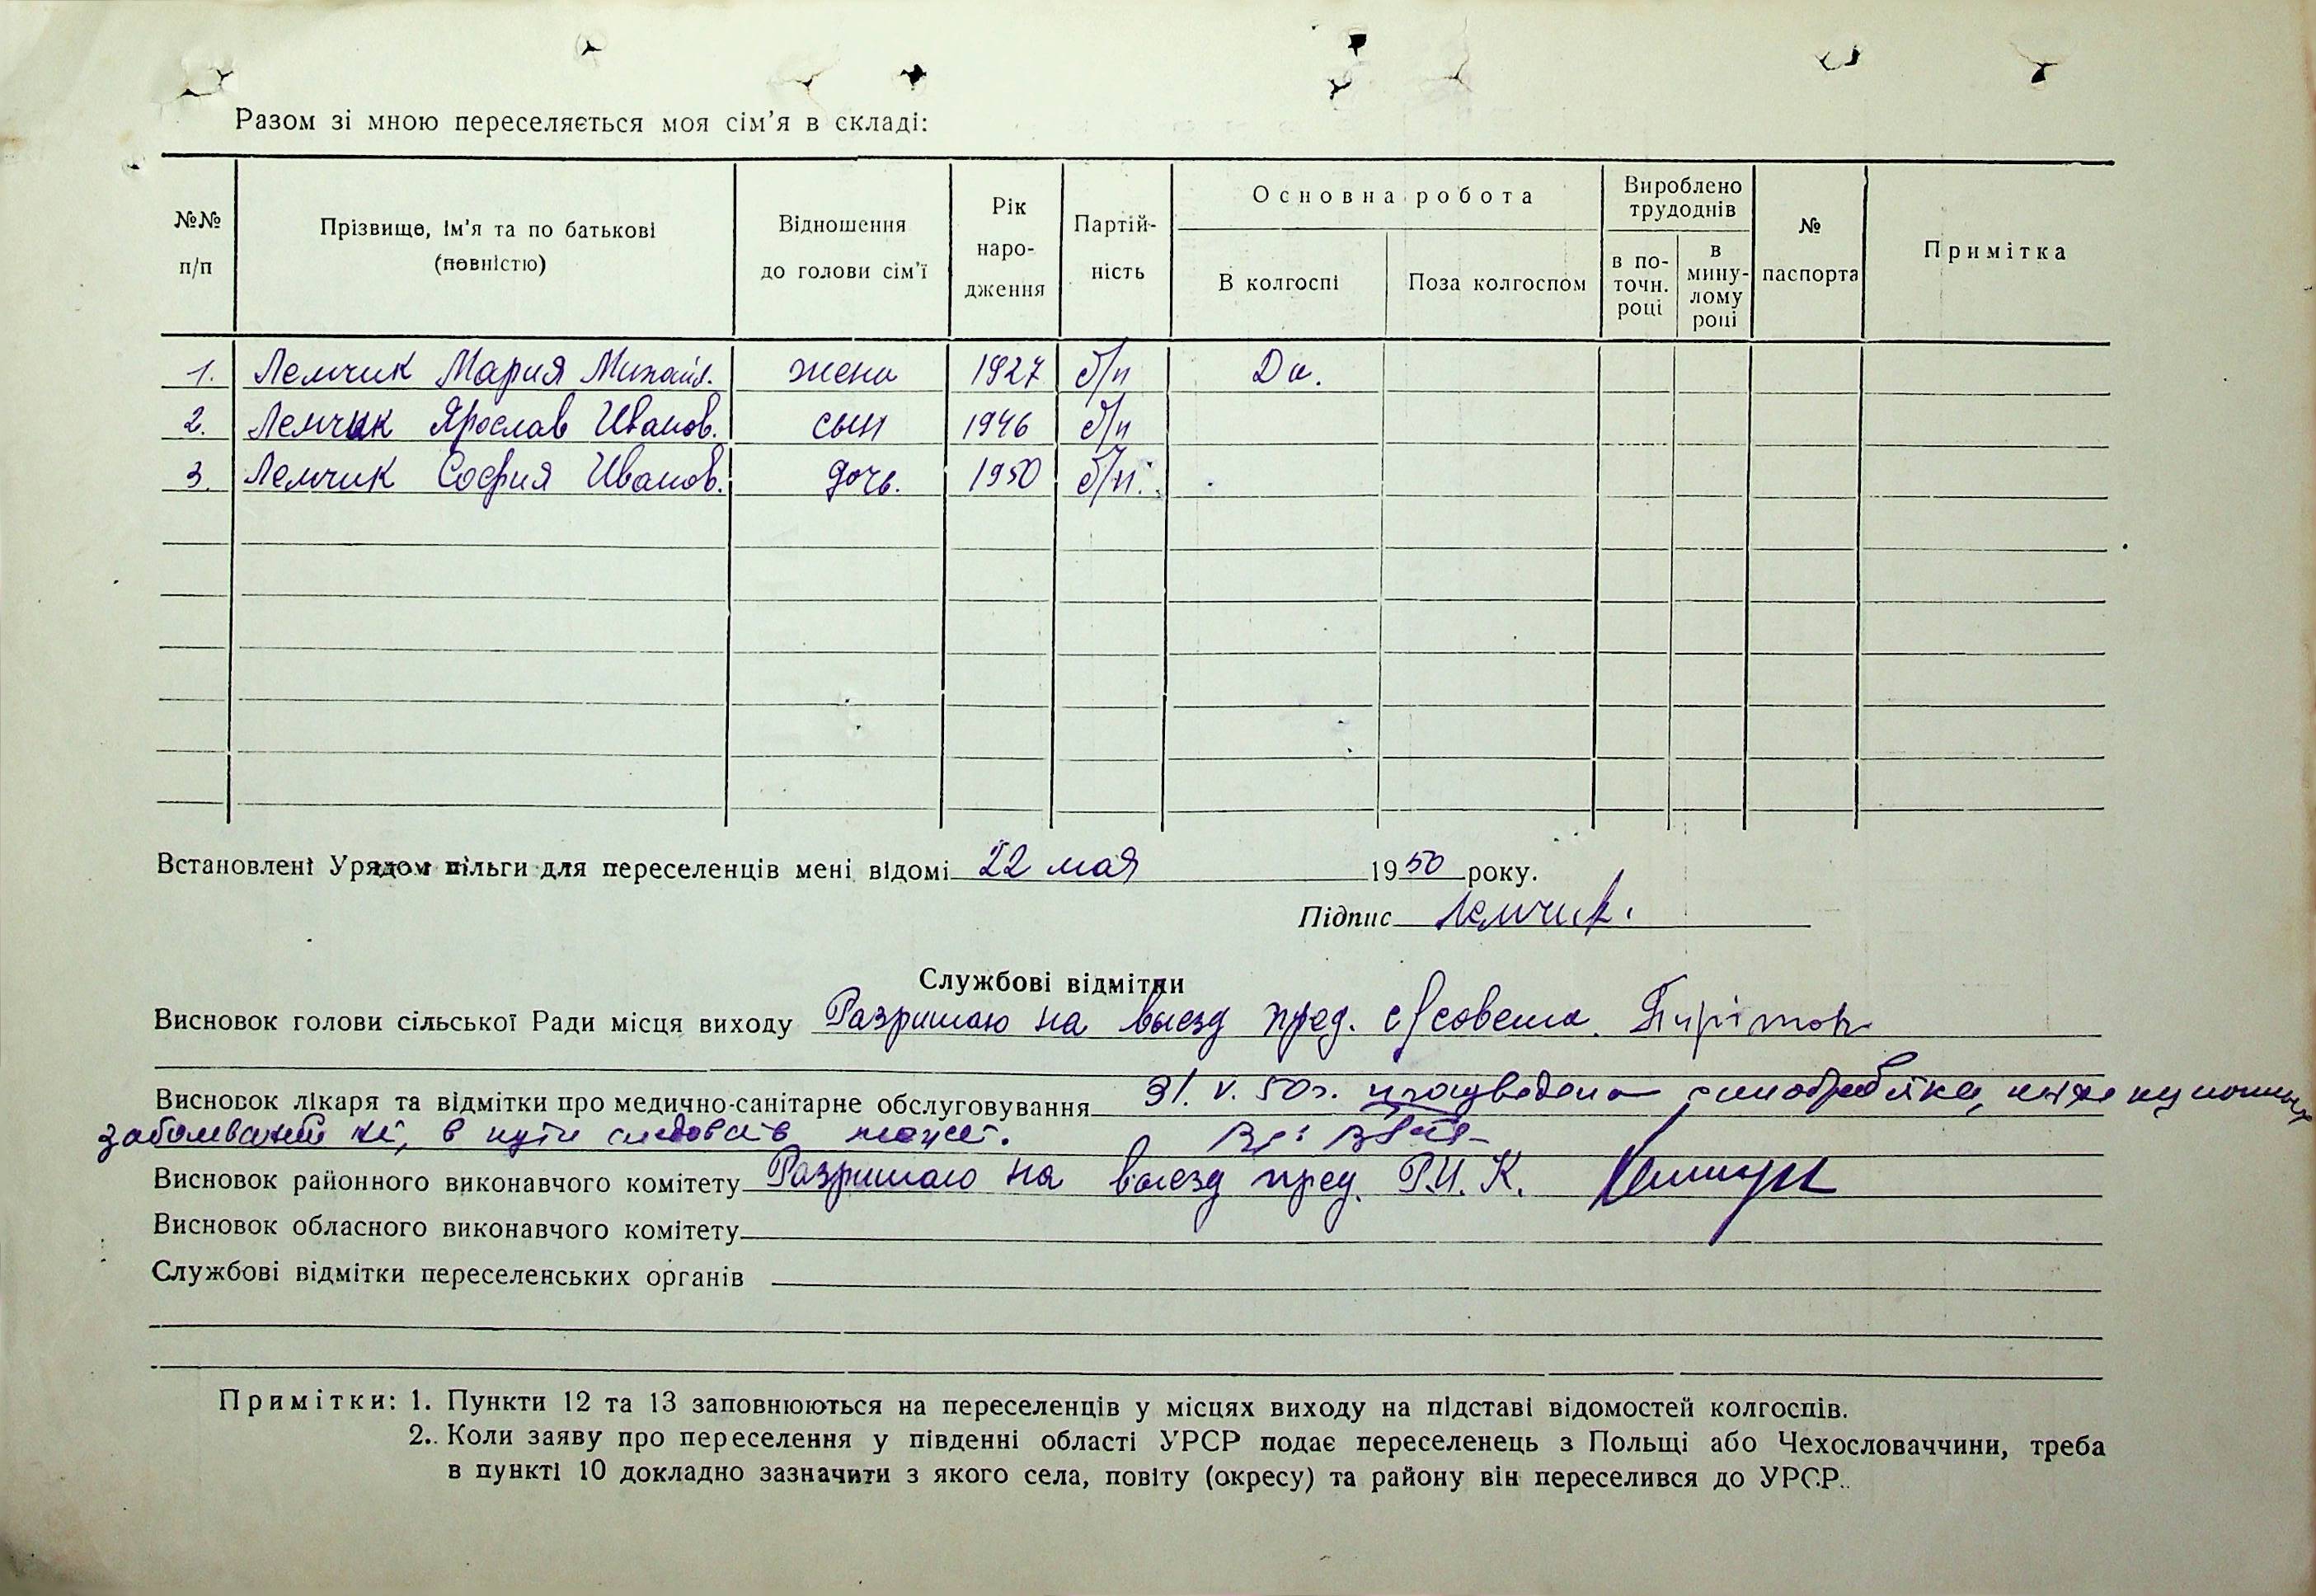 Разом зі мною переселяється моя сім'я в складі:
№№ п/п
Прізвище, ім'я та по батькові (повністю)
Відношення до голови сім'ї
Рік наро- дження
Партій- ність
Основна робота
В колгоспі
Поза колгоспом
Вироблено трудоднів
в по- точн. році
в мину- лому році
№ паспорта
Примітка
1. Лемчик Мария Михайл. жена 1927 б/п Да.
2. Лемчик Ярослав Иванов. сын 1946 б/п
3. Лемчик София Иванов. дочь. 1950 б/п.
Встановлені Урядом пільги для переселенців мені відомі 22 мая 1950 року.
Підпис Лемчик.
Службові відмітки
Висновок голови сільської Ради місця виходу Разришаю на выезд пред. с/совета.
Висновок лікаря та відмітки про медично-санітарне обслуговування 31. V. 50г. произведена санобработка,
в пути следовать может.
Висновок районного виконавчого комітету Разришаю на выезд пред. Р.И.К.
Висновок обласного виконавчого комітету
Службові відмітки переселенських органів
Примітки: 1. Пункти 12 та 13 заповнюються на переселенців у місцях виходу на підставі відомостей колгоспів.
2. Коли заяву про переселення у південні області УРСР подає переселенець з Польщі або Чехословаччини, треба
в пункті 10 докладно зазначити з якого села, повіту (окресу) та району він переселився до УРСР.